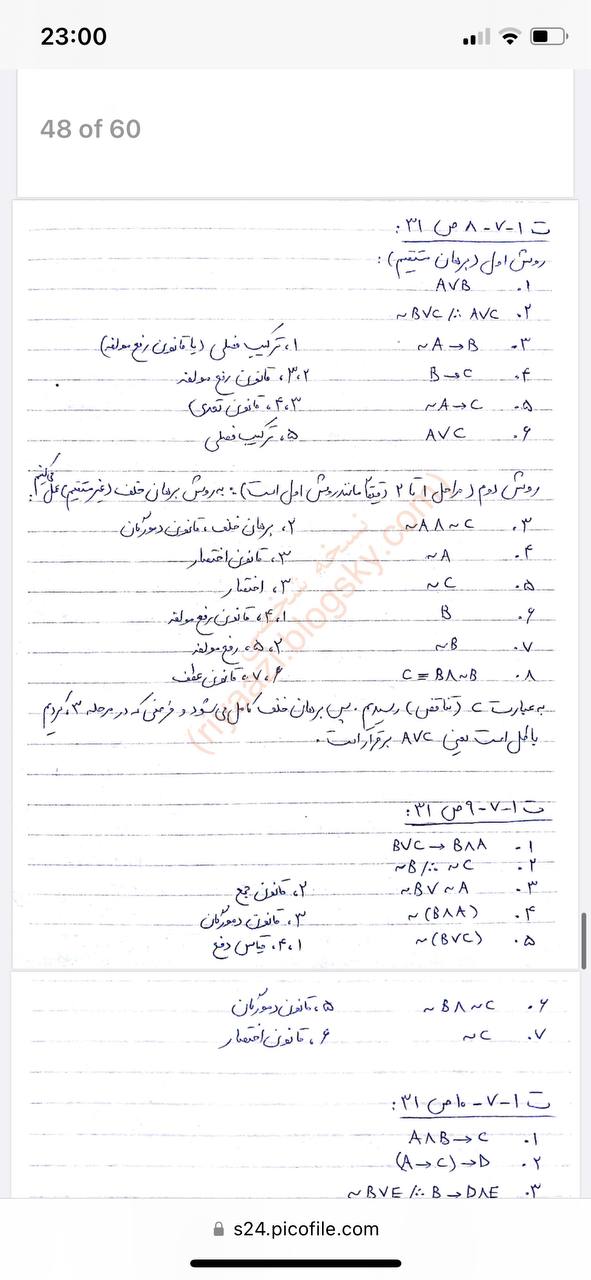 23:00
48 of 60
ت ۱-۷-۸ ص ۳۱:
روش اول (برهان مستقیم):
۱. A∨B
۲. ~B∨C /∴ A∨C
۳. ~A→B ۱، ترکیب فصلی (یا قانون رفع مولفه)
۴. B→C ۲،۳، قانون رفع مولفه
۵. ~A→C ۳،۴، قانون تعدی
۶. A∨C ۵، ترکیب فصلی
روش دوم (مراحل ۱ تا ۲ دقیقاً مانند روش اول است): به روش برهان خلف (غیر مستقیم) عمل می‌کنیم.
۳. ~A∧~C ۲، برهان خلف، قانون دمورگان
۴. ~A ۳، قانون اختصار
۵. ~C ۳، اختصار
۶. B ۱،۴، قانون رفع مولفه
۷. ~B ۲،۵، رفع مولفه
۸. C≡B∧~B ۶،۷، قانون عطف
به عبارت C (تناقض) رسیدیم. پس برهان خلف کامل می‌شود و فرضی که در مرحله ۳ کردیم
باطل است یعنی A∨C برقرار است.
ت ۱-۷-۹ ص ۳۱:
۱. B∨C→B∧A
۲. ~B /∴ ~C
۳. ~B∨~A ۲، قانون جمع
۴. ~(B∧A) ۳، قانون دمورگان
۵. ~(B∨C) ۱،۴، قیاس دفع
۶. ~B∧~C ۵، قانون دمورگان
۷. ~C ۶، قانون اختصار
ت ۱-۷-۱۰ ص ۳۱:
۱. A∧B→C
۲. (A→C)→D
۳. ~B∨E /∴ B→D∧E
نسخه شخصی
(riyaazi.blogsky.com)
s24.picofile.com